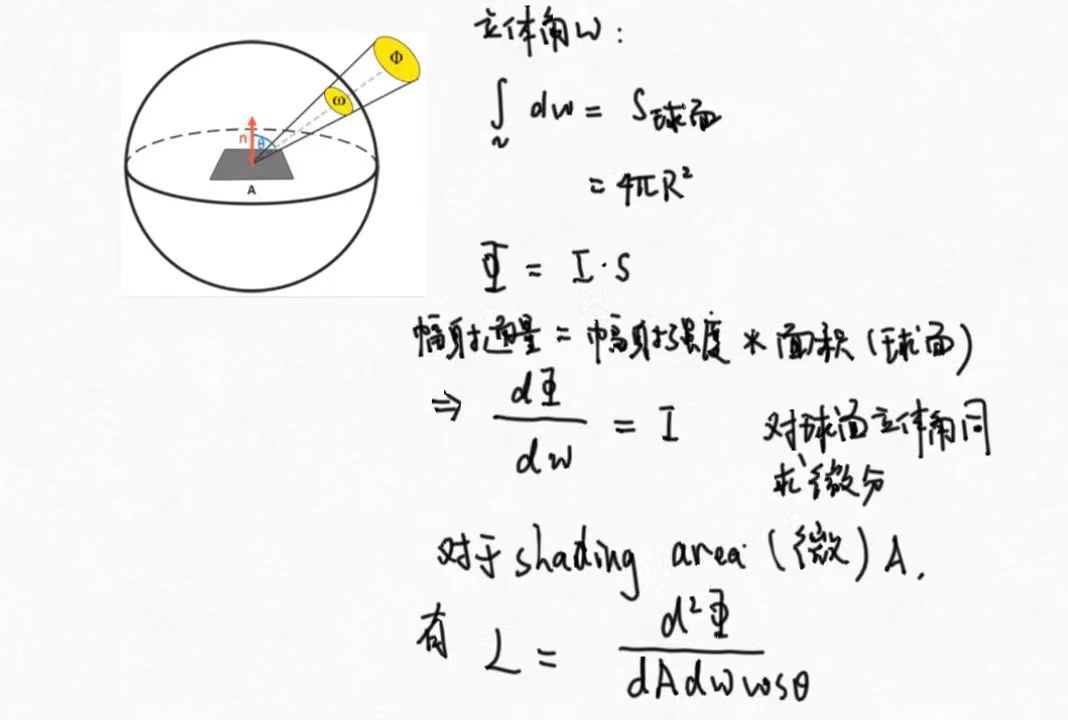 Φ
ω
n
θ
A
立体角ω:
∫ dω = S球面
Ω
= 4πR²
Φ = I·S
幅射通量 = 幅射强度 * 面积 (球面)
⇒ dΦ/dω = I 对球面立体角同
求微分
对于 shading area (微) A.
有 L = d²Φ/dA dω cosθ